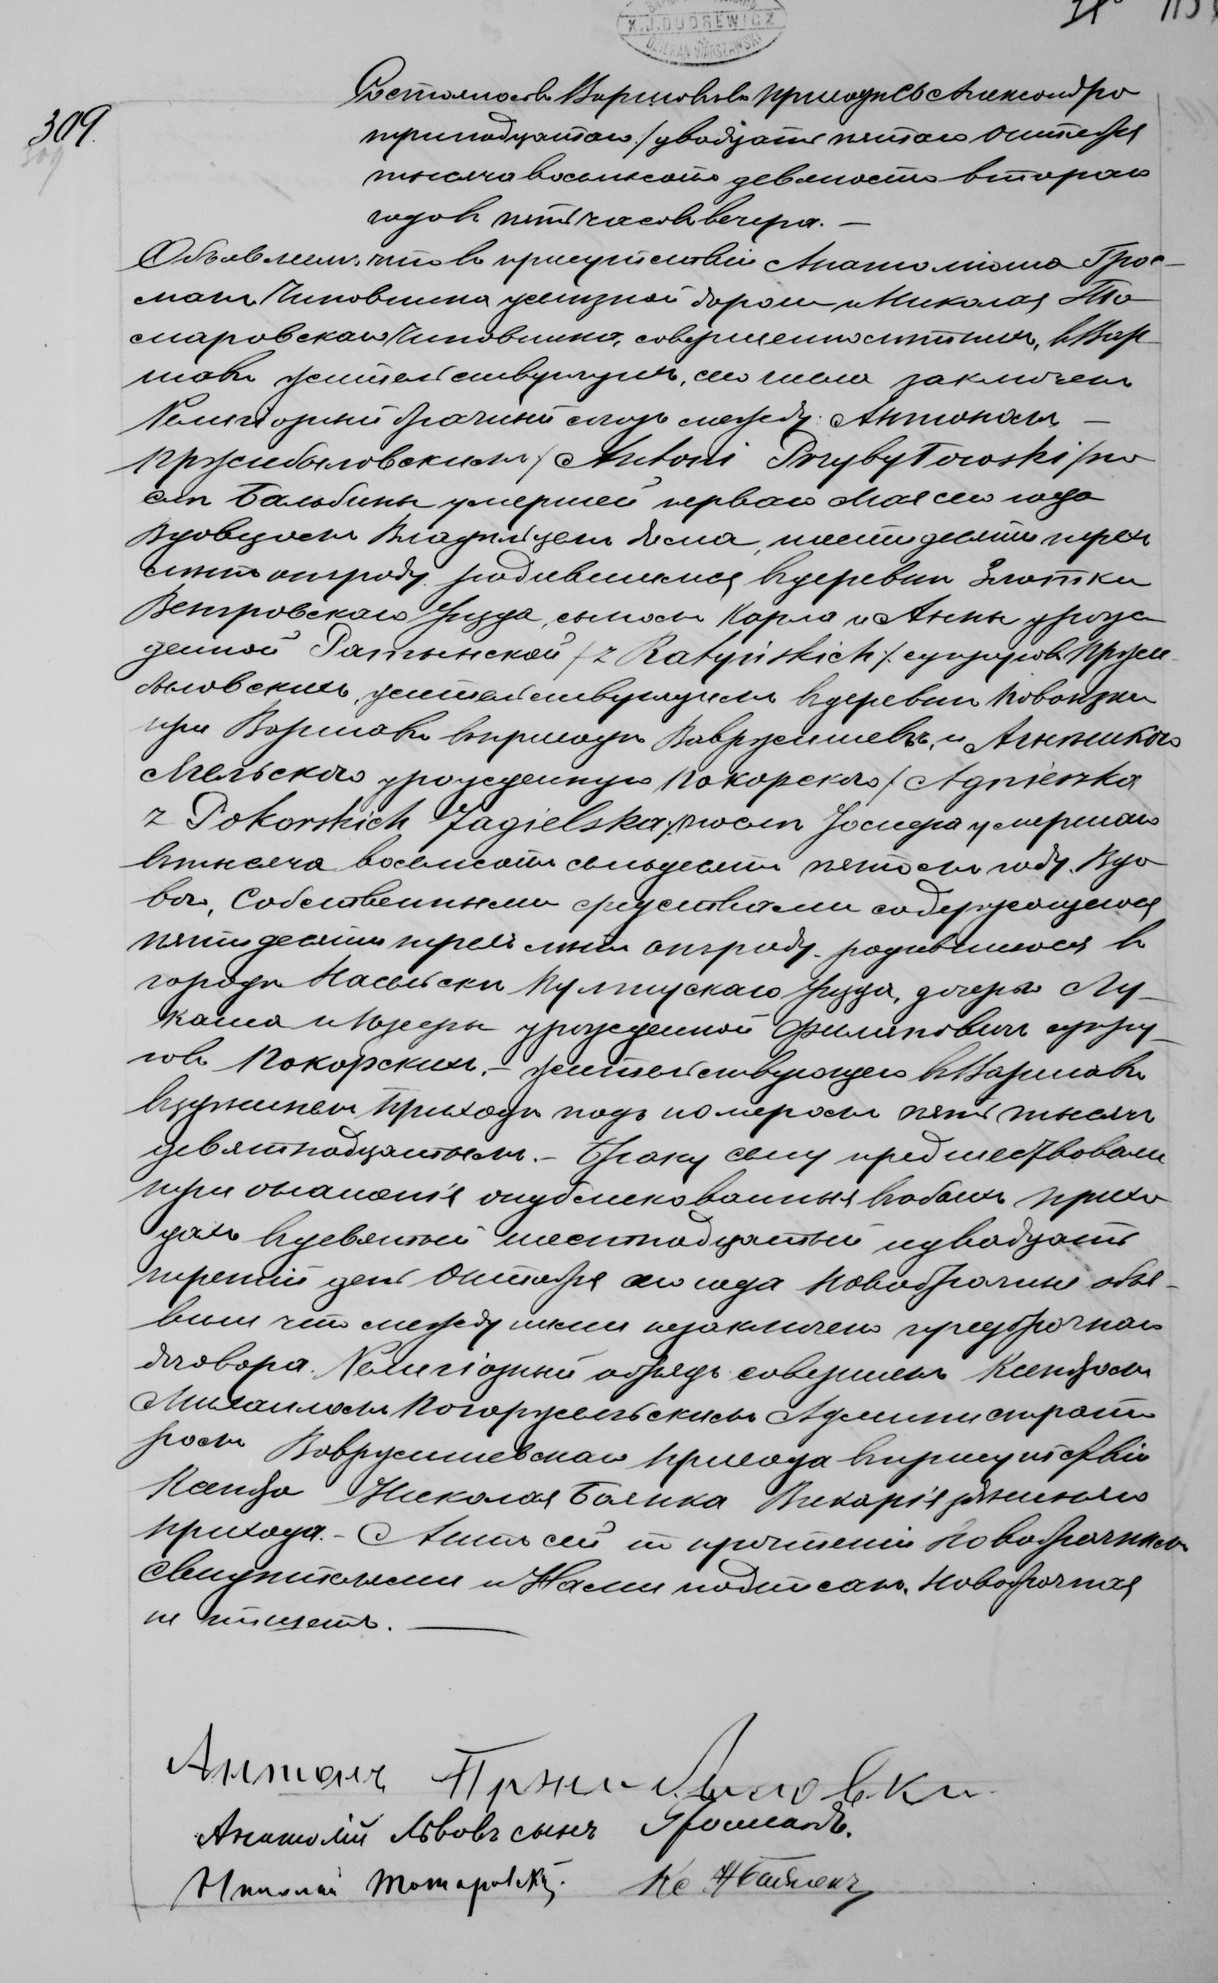 X.J.DUDREWICZ
DZIEKAN WARSZAWSKI
IX
309.
309
Состоялось въ Варшавѣ въ приходѣ Св Александра
тринадцатаго / двадцать пятаго Октября
тысяча восемьсотъ девяносто втораго
года въ пять часовъ вечера. —
Объявляемъ, что въ присутствіи Анатолія Гросъ-
манъ Чиновника желѣзной дороги и Николая То-
маровскаго Чиновника, совершеннолѣтнихъ, въ Вар-
шавѣ жительствующихъ, сего числа заключенъ
Религіозный брачный союзъ между: Антономъ —
Пржибыловскимъ / Antoni Przybyłowski / по-
слѣ Бальбины умершей перваго Мая сего года
Вдовцомъ Владѣльцемъ дома, шестидесяти трехъ
лѣтъ отъ роду родившимся въ деревнѣ Злотки
Венгровскаго Уѣзда, сыномъ Карла и Анны урож-
денной Ратынской / z Ratyńskich / супруговъ Пржи-
быловскихъ, жительствующимъ въ деревнѣ Повонзки
при Варшавѣ въ приходѣ Вавржишевъ, и Агнѣшкою
Ягельскою урожденною Покорскою / Agnieszka
z Pokorskich Jagielska / послѣ Іосифа умершаго
въ тысяча восемьсотъ семьдесятъ пятомъ году Вдо-
вою, Собственными средствами содержащеюся
пятидесяти трехъ лѣтъ отъ роду родившеюся въ
городѣ Насельскѣ Пултускаго Уѣзда, дочерью Лу-
каша и Юзефы урожденной Филиповичъ супру-
говъ Покорскихъ, — жительствующею въ Варшавѣ
въ здѣшнемъ приходѣ подъ номеромъ пять тысячъ
девятнадцатымъ. — Браку сему предшествовали
три оглашенія опубликованныя въ обоихъ прихо-
дахъ въ девятый шестнадцатый и двадцать
третій день Октября сего года Новобрачные объя-
вили что между ними не заключено предбрачнаго
договора. Религіозный обрядъ совершенъ Ксендзомъ
Михаиломъ Погоржельскимъ Администрато-
ромъ Вавржишевскаго прихода въ присутствіи
Ксендза Николая Боянка Викарія здѣшняго
прихода. — Актъ сей по прочтеніи Новобрачнымъ
Свидѣтелями и Нами подписанъ, Новобрачная
не пишетъ. —
Антонъ Пржибыловски
Анатолій Львовъ сынъ Гросманъ.
Николай Томаровскій. Кс Н Баянекъ